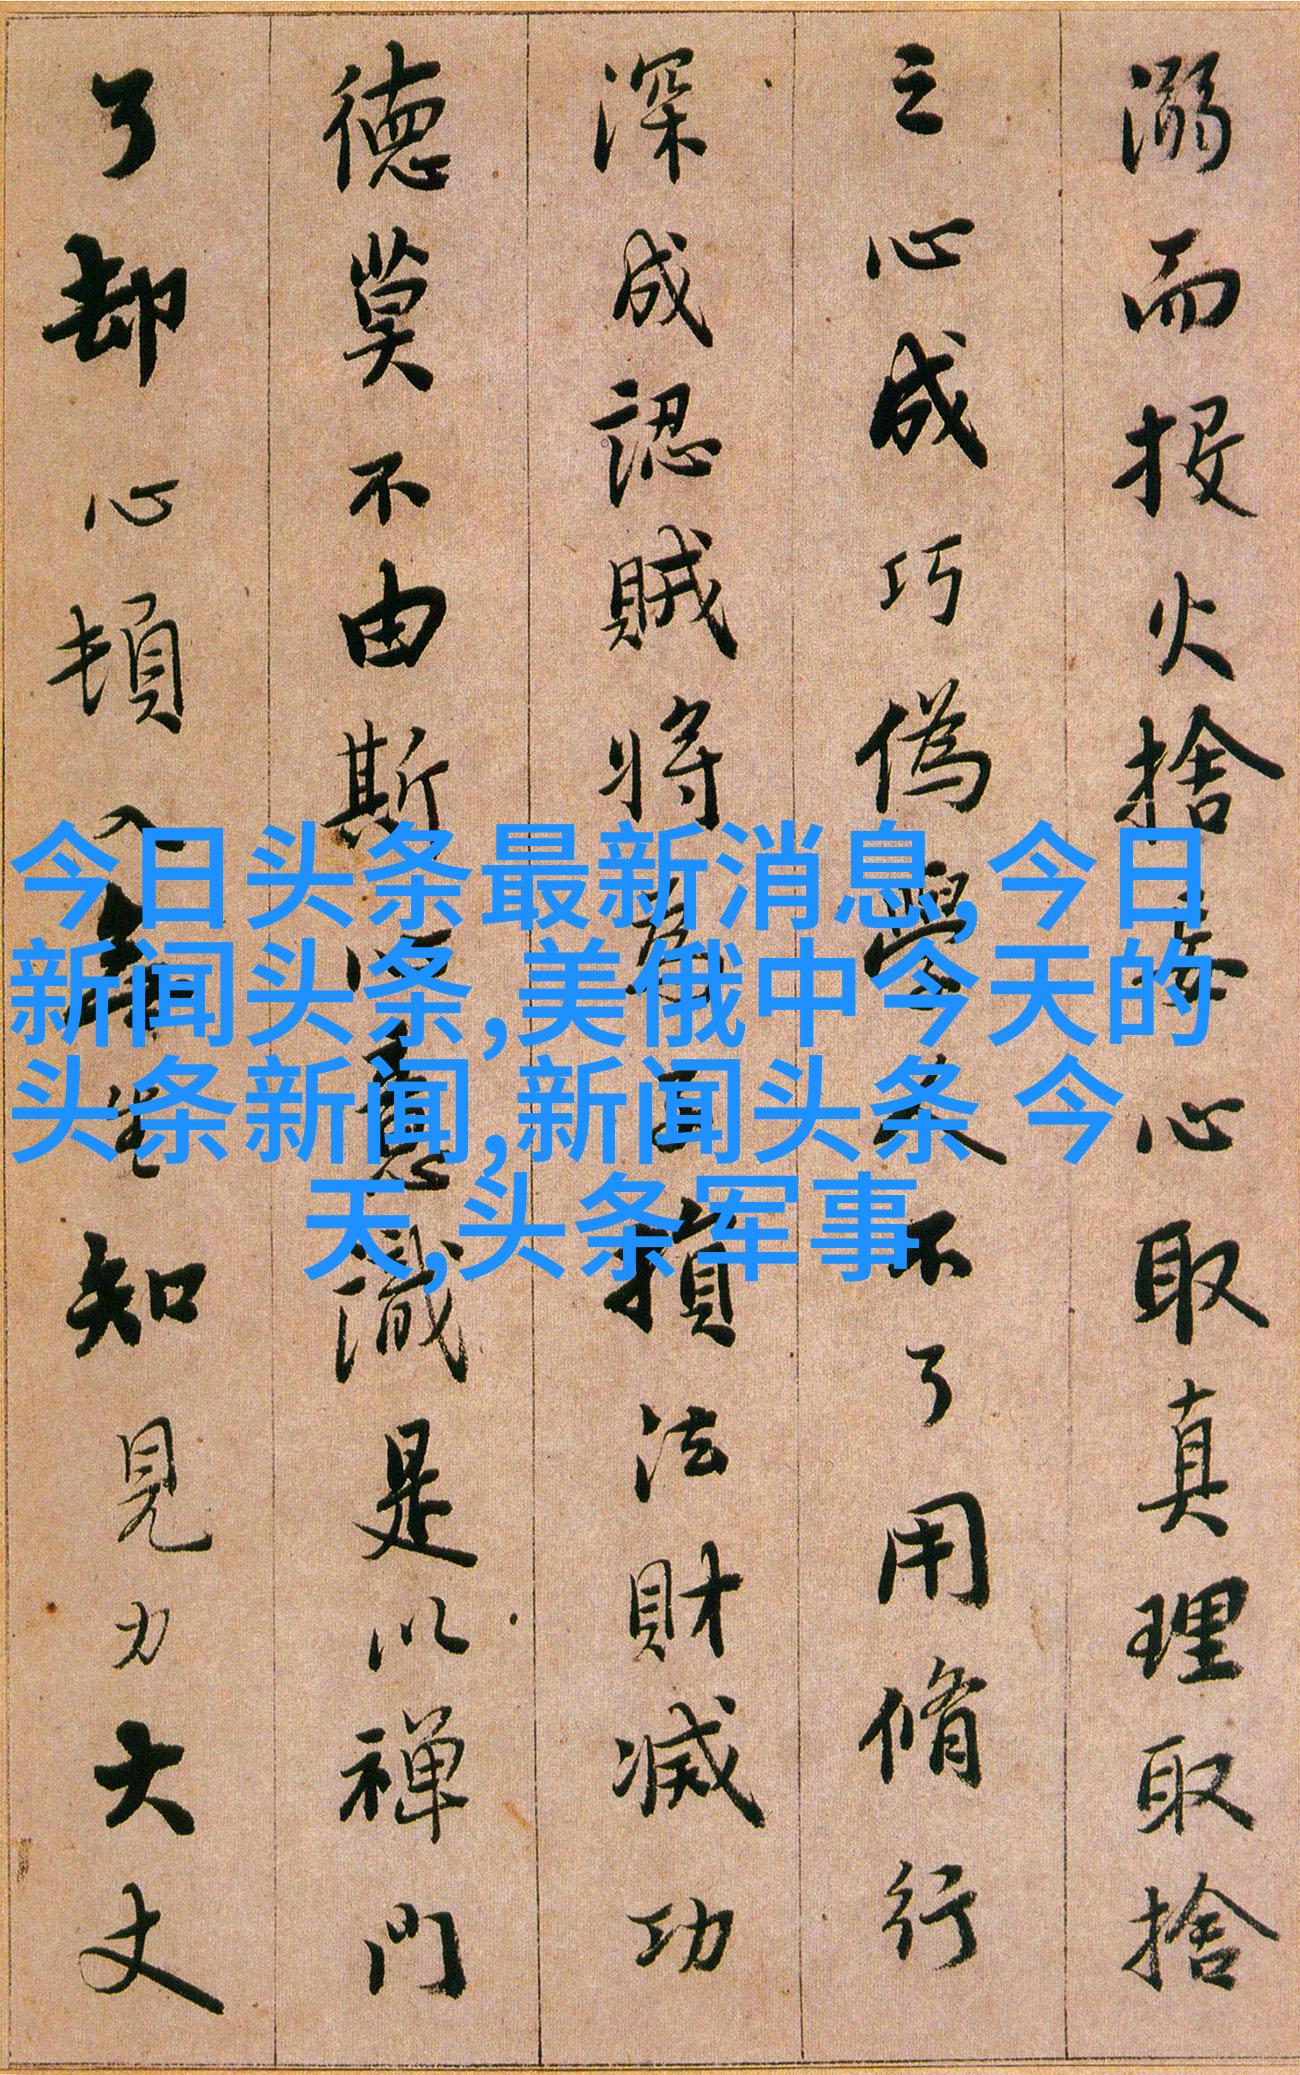 溺而投火捨妄心取真理取捨
之心成巧偽學人不了用脩行
深成認賊將為子損法財滅功
德莫不由斯心意識是以禅門
了却心頓入無生知見力大丈
今日头条最新消息,今日
新闻头条,美俄中今天的
头条新闻,新闻头条 今
天,头条军事